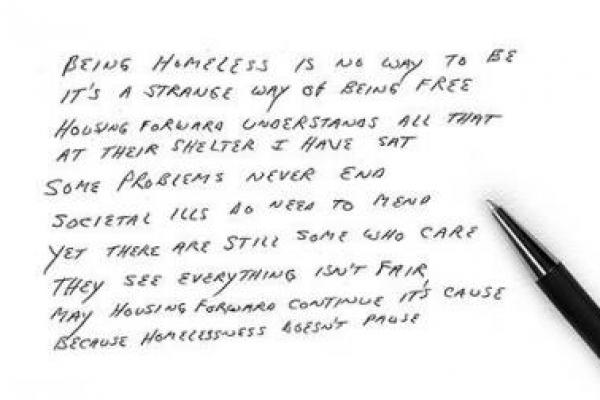 BEING HOMELESS IS NO WAY TO BE
IT'S A STRANGE WAY OF BEING FREE
HOUSING FORWARD UNDERSTANDS ALL THAT
AT THEIR SHELTER I HAVE SAT
SOME PROBLEMS NEVER END
SOCIETAL ILLS DO NEED TO MEND
YET THERE ARE STILL SOME WHO CARE
THEY SEE EVERYTHING ISN'T FAIR
MAY HOUSING FORWARD CONTINUE IT'S CAUSE
BECAUSE HOMELESSNESS DOESN'T PAUSE